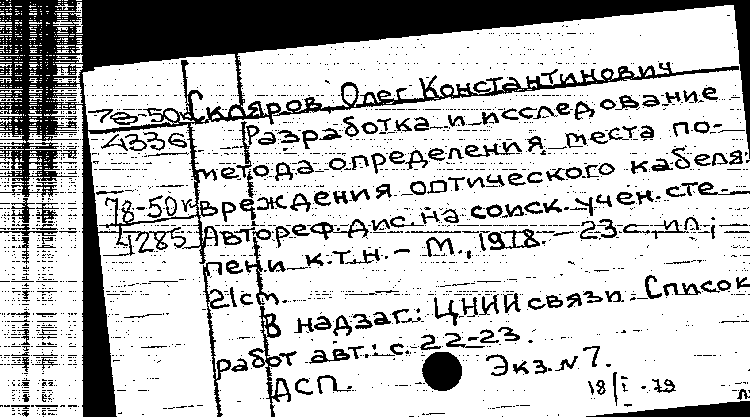 78-50к Скляров, Олег Константинович
4336 Разработка и исследование
метода определения места по-
78-50к вреждения оптического кабеля:
4285 Автореф. дис. на соиск. учен. сте-
пени к.т.н. - М., 1978. - 23 с., ил.;
21 cm.
В надзаг.: ЦНИИ связи. Список
работ авт.: с. 22-23.
ДСП. Экз. № 7.
18/I - 79